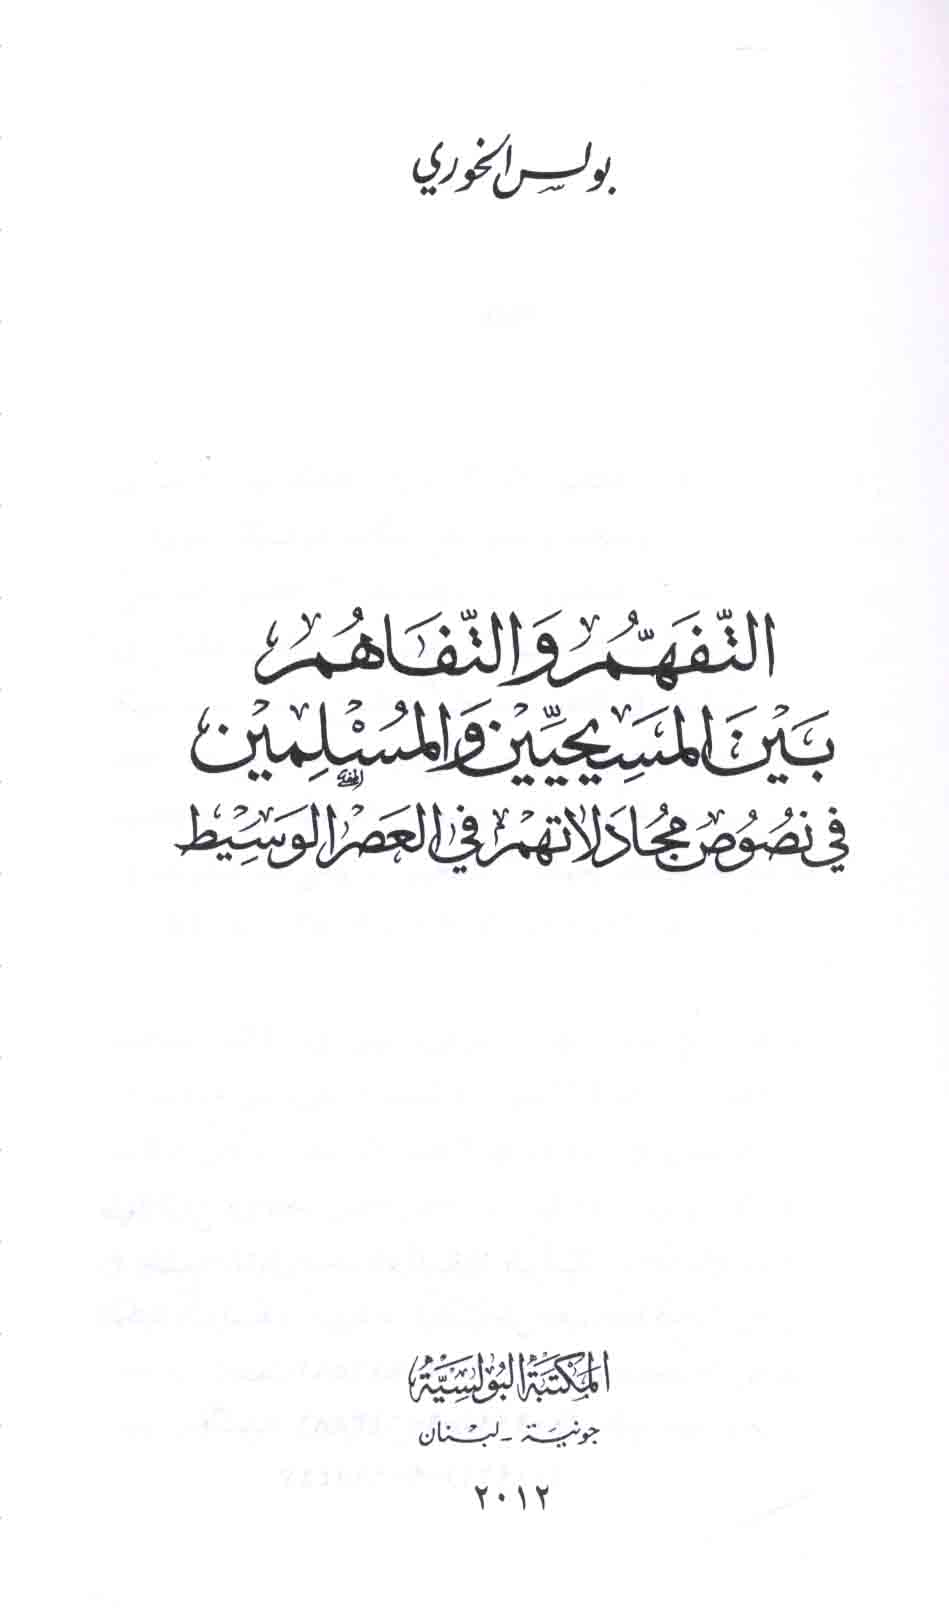 بولس الخوري
التّفهّم والتّفاهم
بَيْنَ المسَيحيّين والمُسْلِمين
في نصُوص مجُادَلاتهم في العصْر الوَسيْط
المكتبَة البُولسيَّة
جونيَة - لبنان
٢٠١٢